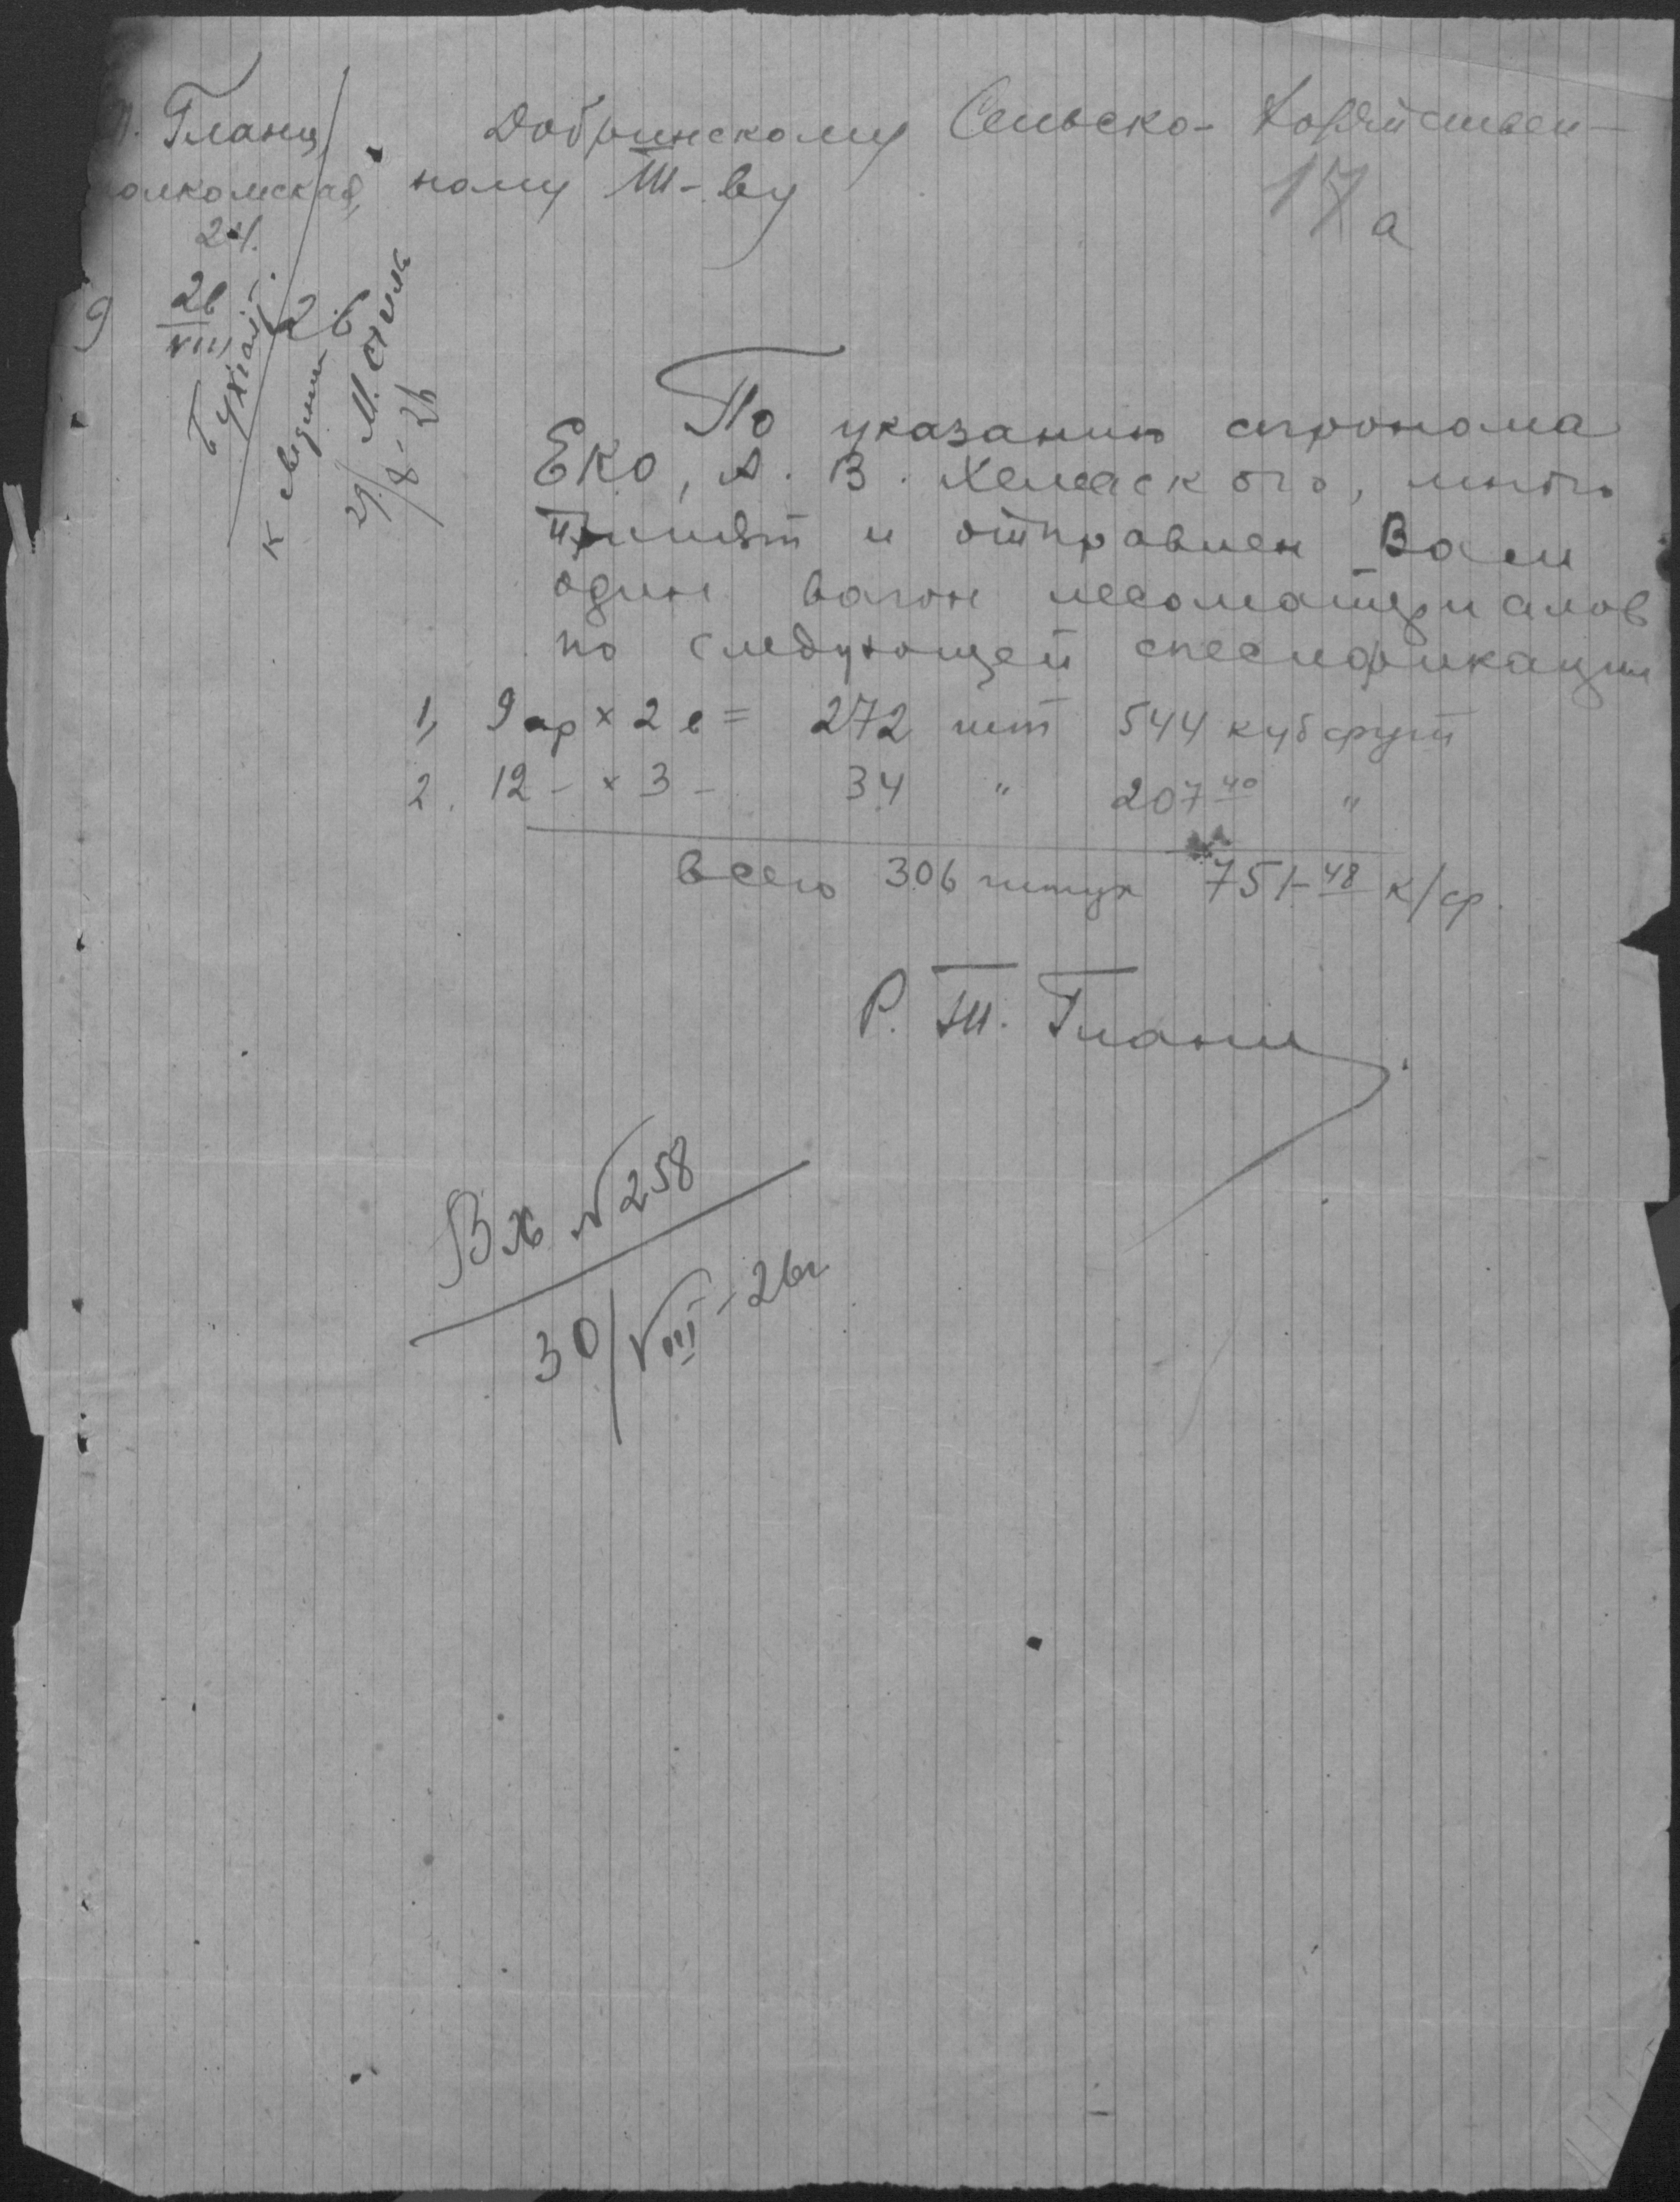 Гланц
24.
26
VIII
Добринскому Сельско-Хозяйствен-
ному Т-ву
17а
Бухгалт.
к сведению
29/8-26
По указанию агронома
ЕКО, А. В. Хелмского, мною
принят и отправлен Вам
один вагон лесоматериалов
по следующей спесификации
1, 9 ар × 2 в = 272 шт 544 куб фут
2. 12 - × 3 - 34 " 207 40 "
всего 306 штук 751-48 к/ф.
Р. Т. Гланц
Вх № 258
30/VIII-26г